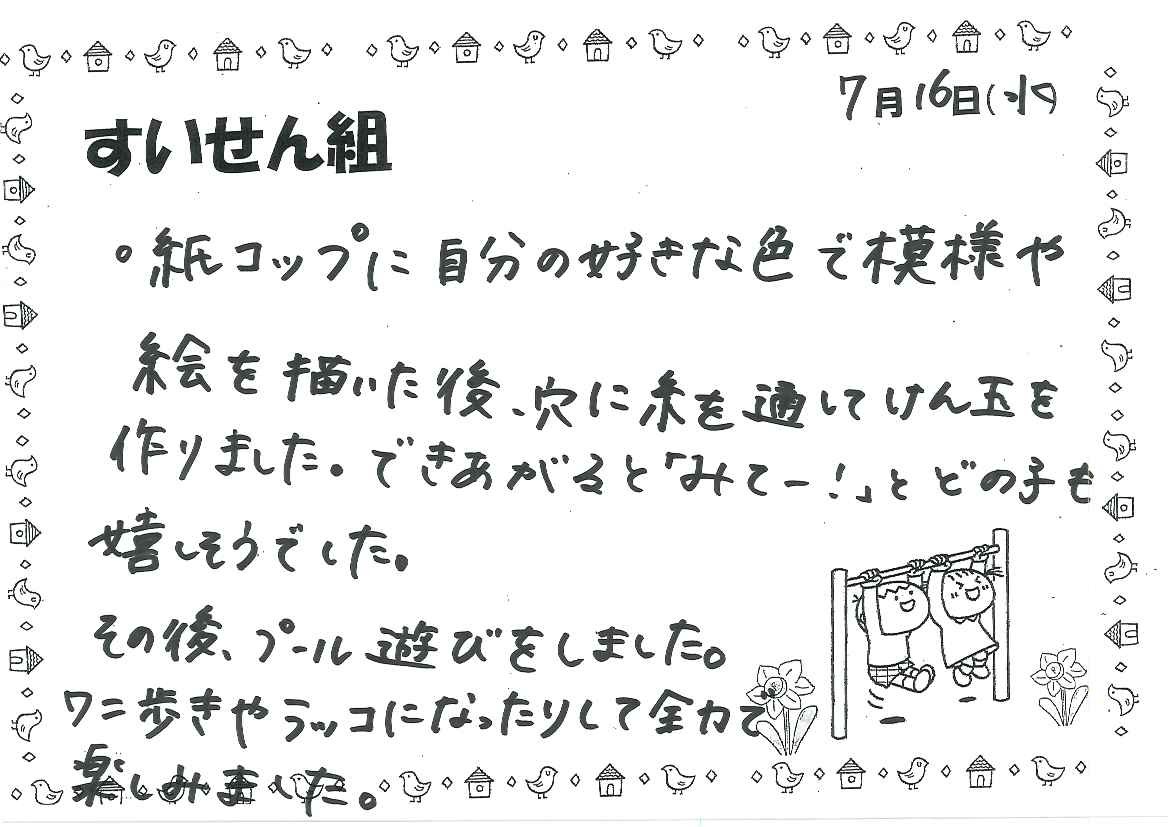 7月16日(水)
すいせん組
。紙コップに自分の好きな色で模様や
絵を描いた後、穴に糸を通してけん玉を
作りました。できあがると「みてー!」とどの子も
嬉しそうでした。
その後、プール遊びをしました。
ワニ歩きやラッコになったりして全力で
楽しみました。